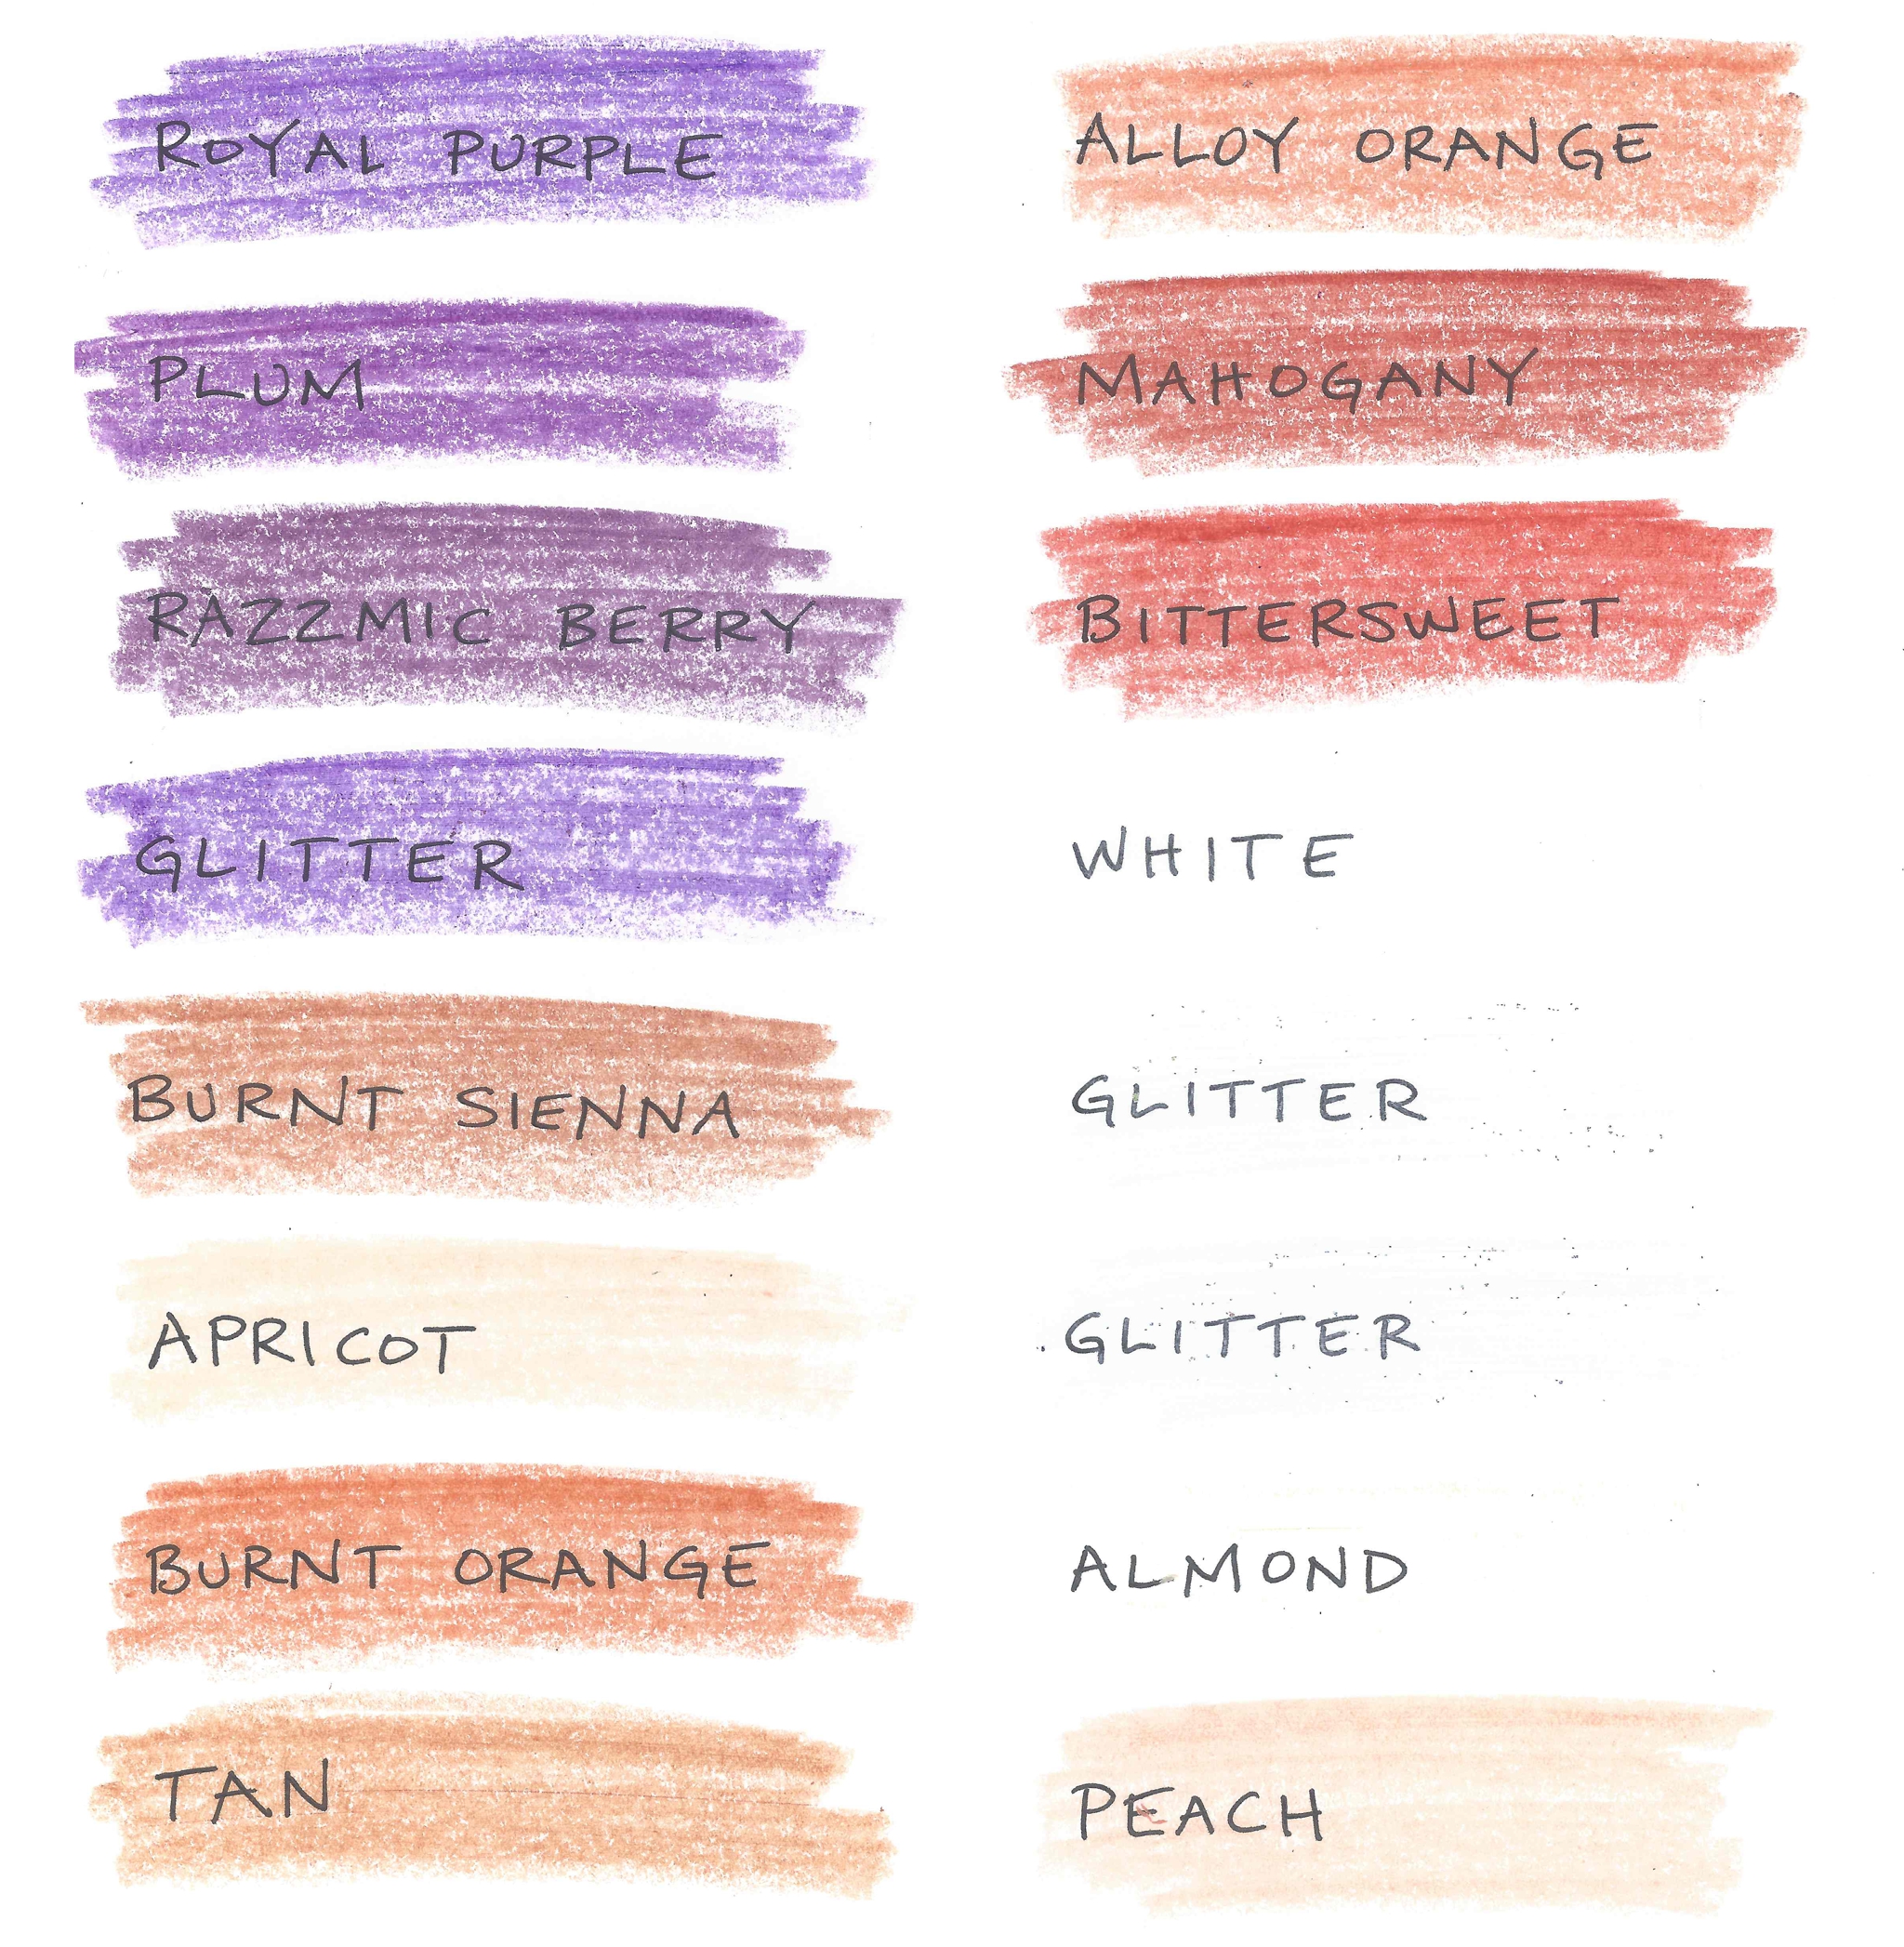 ROYAL PURPLE
PLUM
RAZZMIC BERRY
GLITTER
BURNT SIENNA
APRICOT
BURNT ORANGE
TAN
ALLOY ORANGE
MAHOGANY
BITTERSWEET
WHITE
GLITTER
GLITTER
ALMOND
PEACH